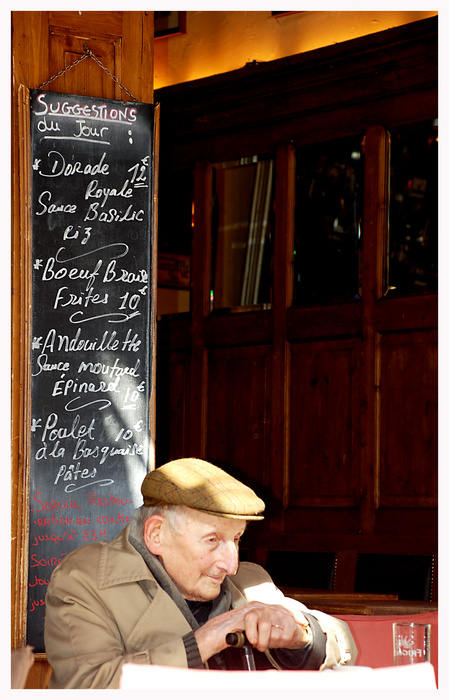 SUGGESTIONS
du Jour :
* Dorade 12€
Royale
Sauce Basilic
Riz
* Boeuf Braisé
Frites 10€
* Andouillette
Sauce moutard
Épinard 10€
* Poulet 10€
à la Basquaise
Pâtes
Soirée
jusqu'à
Soirée